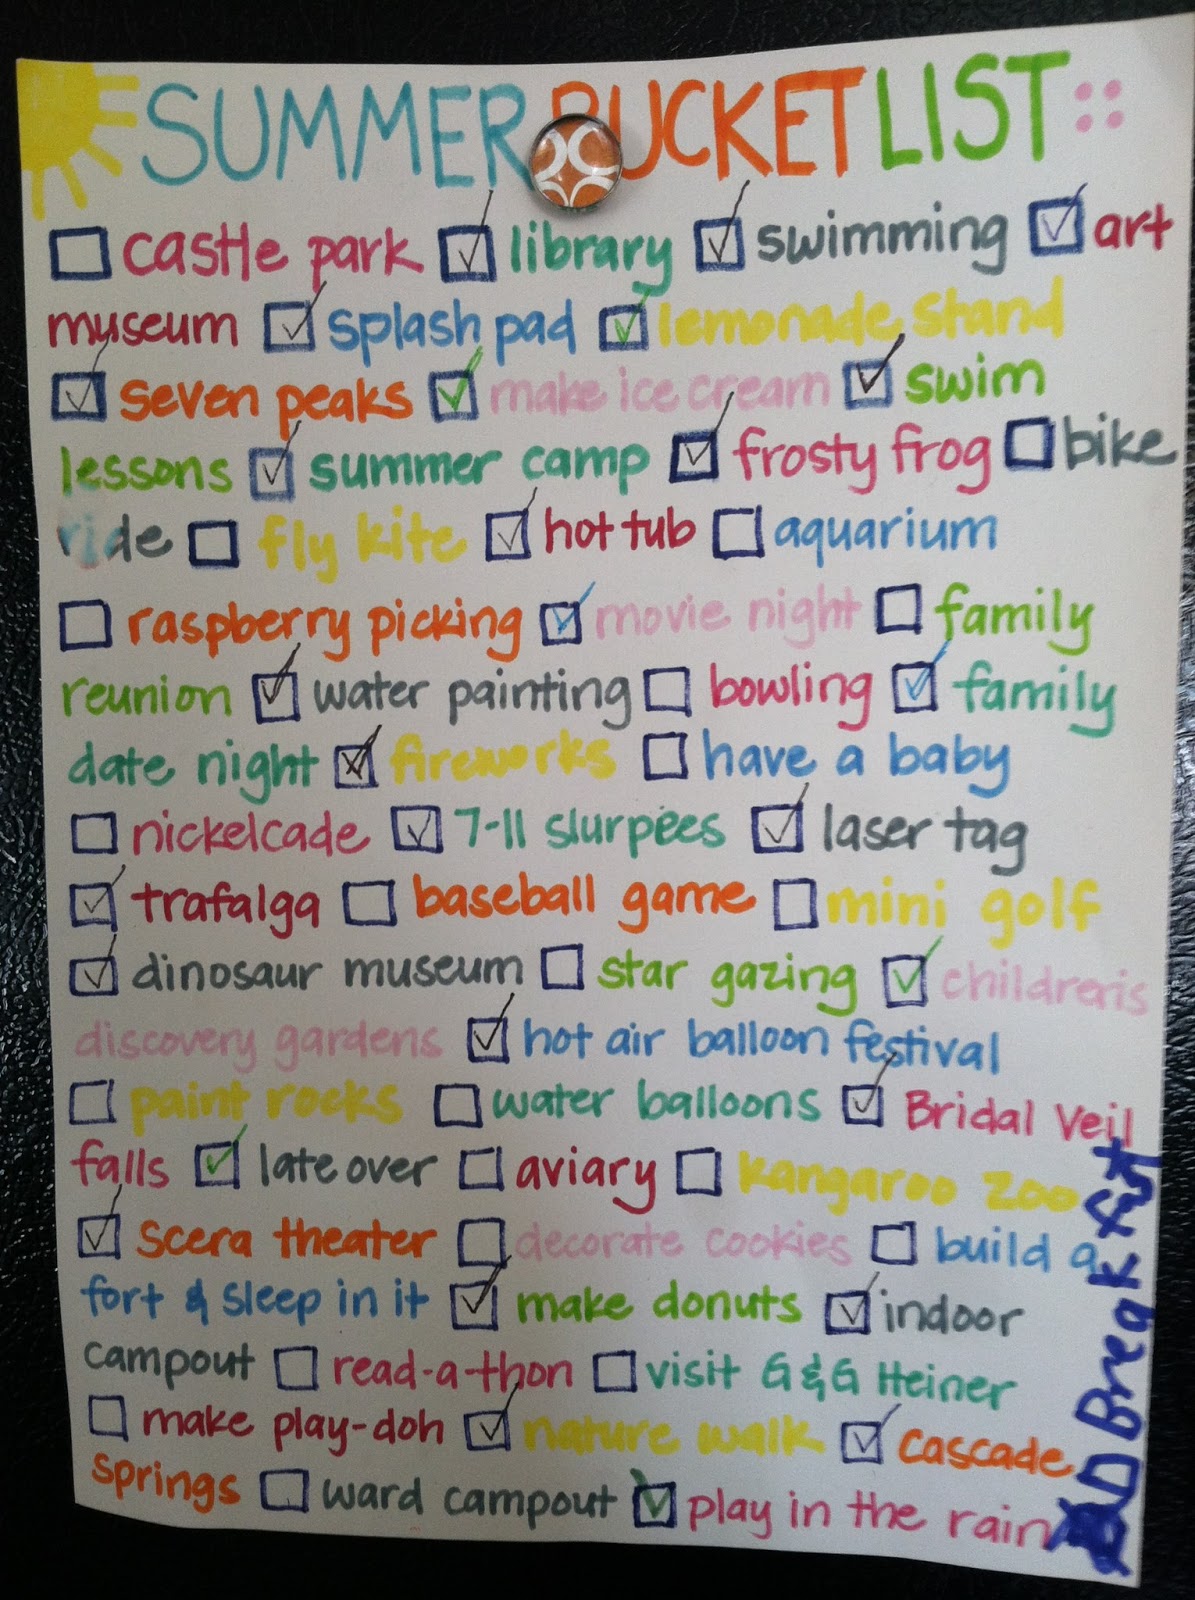 SUMMER BUCKET LIST
☐ castle park ☑ library ☑ swimming ☑ art
museum ☑ splash pad ☑ lemonade stand
☑ seven peaks ☑ make ice cream ☑ swim
lessons ☑ summer camp ☑ frosty frog ☐ bike
ride ☐ fly kite ☑ hot tub ☐ aquarium
☐ raspberry picking ☑ movie night ☐ family
reunion ☑ water painting ☐ bowling ☑ family
date night ☒ fireworks ☐ have a baby
☐ nickelcade ☑ 7-11 slurpees ☑ laser tag
☑ trafalga ☐ baseball game ☐ mini golf
☑ dinosaur museum ☐ star gazing ☑ children's
discovery gardens ☑ hot air balloon festival
☐ paint rocks ☐ water balloons ☑ Bridal Veil
falls ☑ late over ☐ aviary ☐ kangaroo zoo
☑ Scera theater ☐ decorate cookies ☐ build a
fort & sleep in it ☑ make donuts ☑ indoor
campout ☐ read-a-thon ☐ visit G&G Heiner
☐ make play-doh ☑ nature walk ☑ Cascade
Springs ☐ ward campout ☑ play in the rain
☐ Break fist